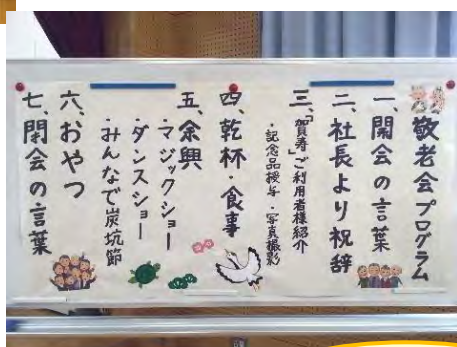 敬老会プログラム
一、開会の言葉
二、社長より祝辞
三、「賀寿」ご利用者様紹介
・記念品授与・写真撮影
四、乾杯・食事
五、余興
・マジックショー
・ダンスショー
・みんなで炭坑節
六、おやつ
七、閉会の言葉